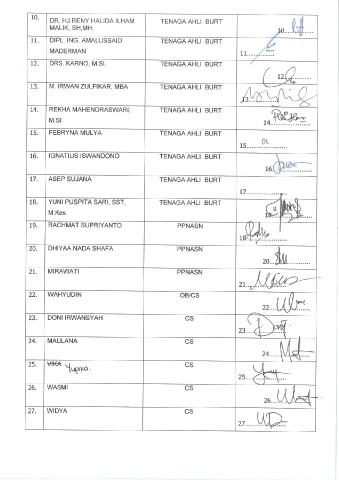 10. DR. HJ.RENY HALIDA ILHAM MALIK, SH,MH. TENAGA AHLI BURT 10
11. DIPL. ING. AMALUSSAID MADERMAN TENAGA AHLI BURT 11
12. DRS. KARNO, M.SI. TENAGA AHLI BURT 12
13. M. IRWAN ZULFIKAR. MBA TENAGA AHLI BURT 13
14. REKHA MAHENDRASWARI, M.SI TENAGA AHLI BURT 14
15. FEBRYNA MULYA TENAGA AHLI BURT 15
16. IGNATIUS ISWANDONO TENAGA AHLI BURT 16
17. ASEP SUJANA TENAGA AHLI BURT 17
18. YUNI PUSPITA SARI, SST, M.Kes. TENAGA AHLI BURT 18
19. RACHMAT SUPRIYANTO PPNASN 19
20. DHIYAA NADA SHAFA PPNASN 20
21. MIRAWATI PPNASN 21
22. WAHYUDIN OB/CS 22
23. DONI IRWANSYAH CS 23
24. MAULANA CS 24
25. CS 25
26. WASMI CS 26
27. WIDYA CS 27